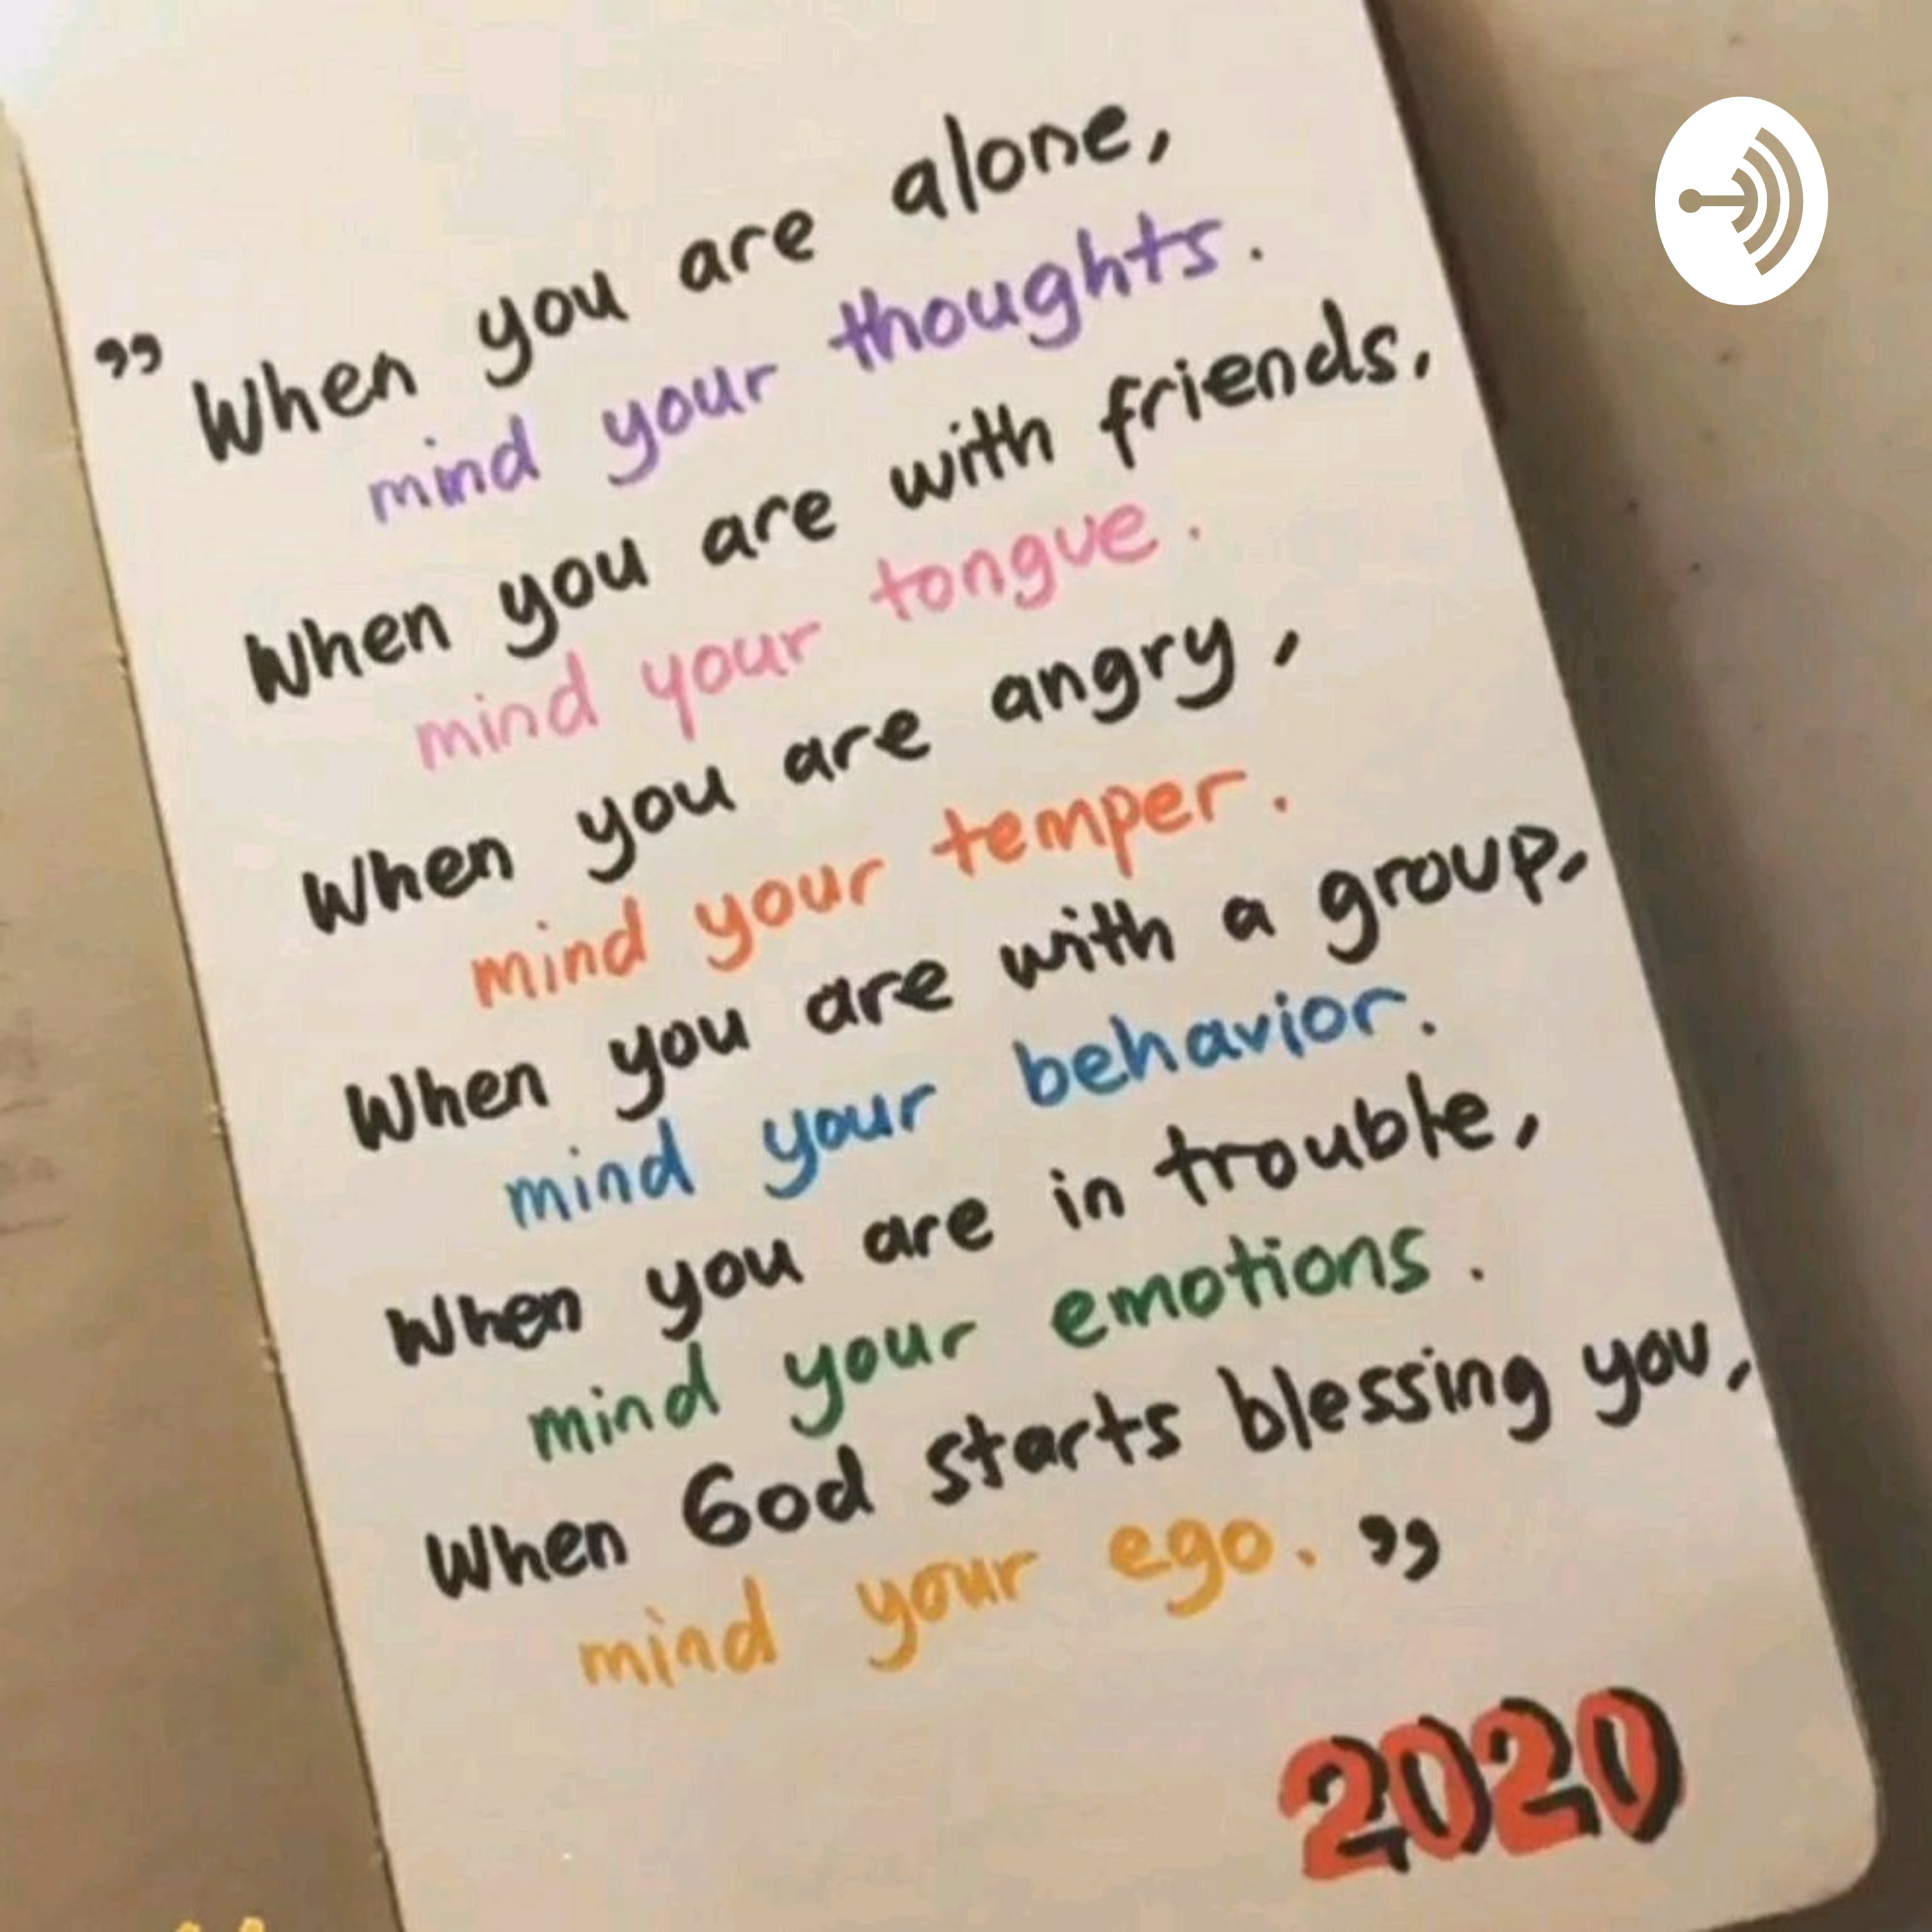 ” When you are alone,
mind your thoughts.
When you are with friends,
mind your tongue.
When you are angry,
mind your temper.
When you are with a group,
mind your behavior.
When you are in trouble,
mind your emotions.
When God starts blessing you,
mind your ego. ”
2020